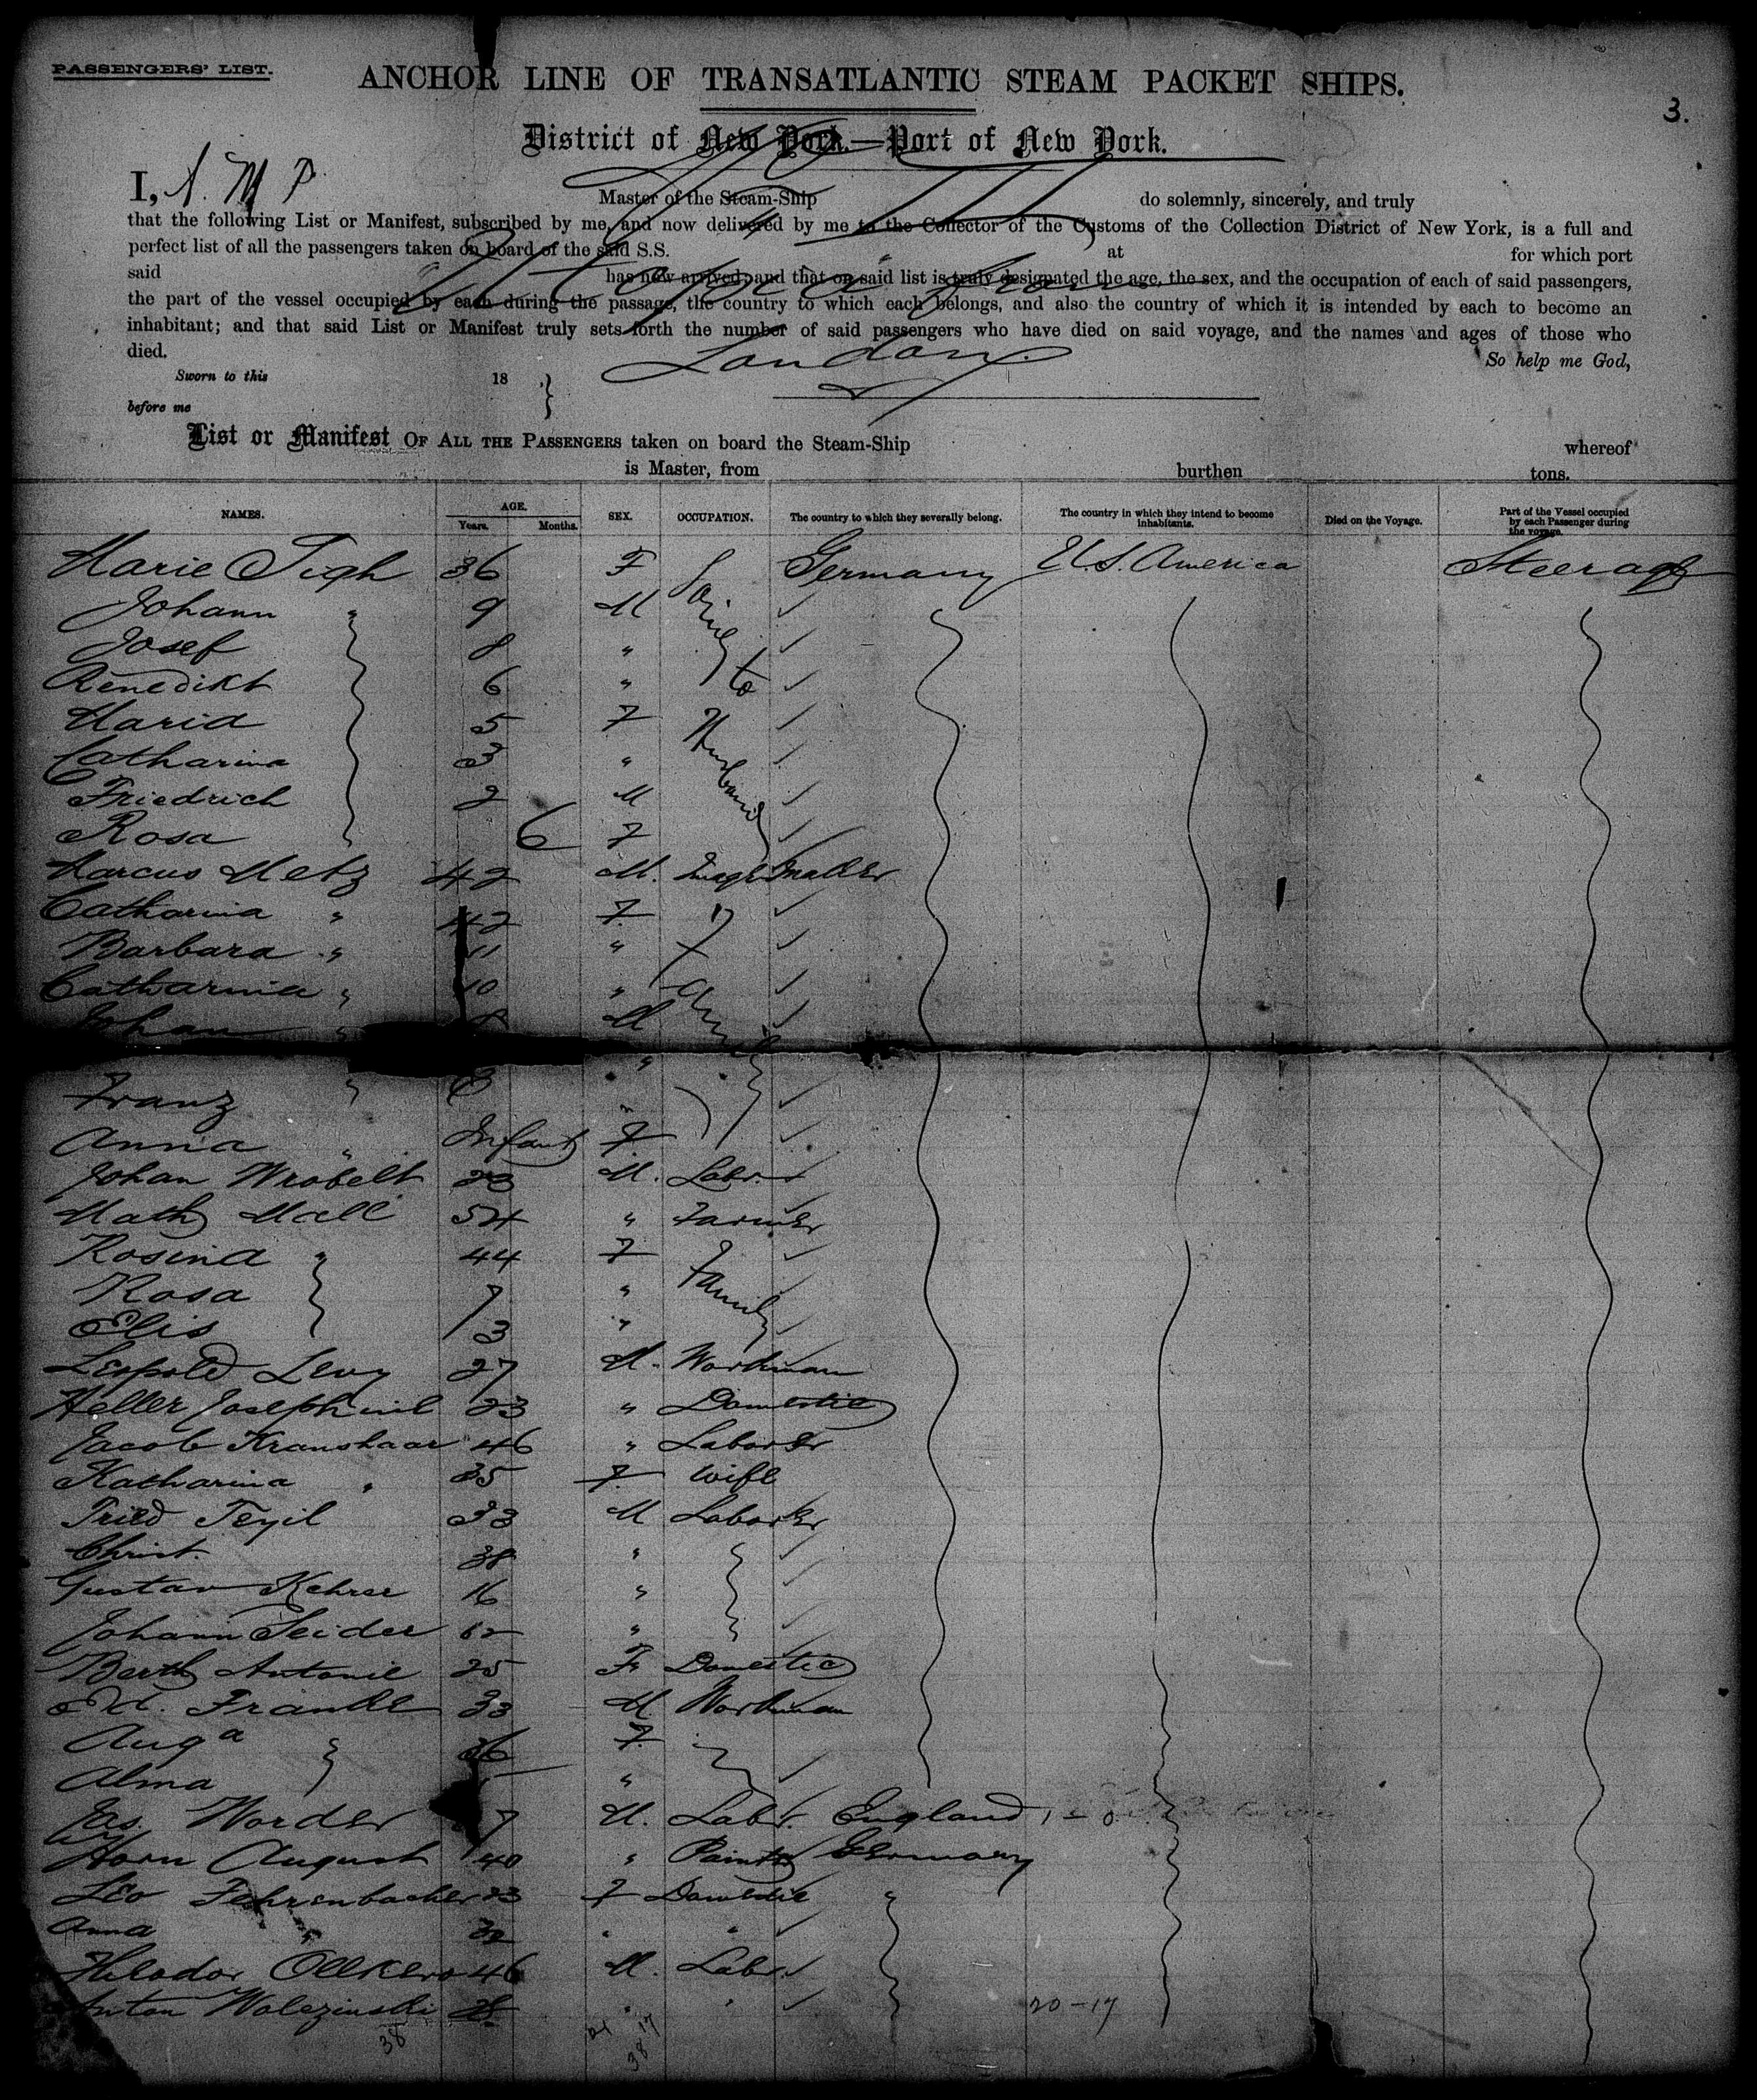 PASSENGERS' LIST.
ANCHOR LINE OF TRANSATLANTIC STEAM PACKET SHIPS.
3.
District of New York.—Port of New York.
I, Master of the Steam-Ship do solemnly, sincerely, and truly
that the following List or Manifest, subscribed by me, and now delivered by me to the Collector of the Customs of the Collection District of New York, is a full and
perfect list of all the passengers taken on board of the said S.S. at for which port
said has now arrived; and that on said list is truly designated the age, the sex, and the occupation of each of said passengers,
the part of the vessel occupied by each during the passage, the country to which each belongs, and also the country of which it is intended by each to become an
inhabitant; and that said List or Manifest truly sets forth the number of said passengers who have died on said voyage, and the names and ages of those who
died. So help me God,
London
Sworn to this 18
before me
List or Manifest OF ALL THE PASSENGERS taken on board the Steam-Ship whereof
is Master, from burthen tons.
NAMES. AGE. Years. Months. SEX. OCCUPATION. The country to which they severally belong. The country in which they intend to become inhabitants. Died on the Voyage. Part of the Vessel occupied by each Passenger during the voyage.
Marie 36 F going to Husband Germany U.S. America Steerage
Johann " 9 M
Josef 8 "
Benedikt 6 "
Maria 5 F
Catharina 3 "
Friedrich 2 M
Rosa 6 F
Marcus Metz 42 M.
Catharina " 42 F
Barbara " 11 "
Catharina " 10 "
Johan " 8 M
"
Franz " "
Anna " Infant F
Johan Wrobelt 23 M. Labr.
Math Mall 54 " Farmer
Rosina " 44 F Family
Rosa 7 "
Elis 3 "
Leopold Levy 27 M. Workman
Heller Josephine 23 " Domestic
Jacob Kranshaar 46 " Laborer
Katharina " 35 F Wife
Fried 33 M Laborer
Christ. 38 "
Gustav Kehrer 16 "
Johann Seider "
Barth Antonie 25 F Domestic
33 M Workman
Auga 26 F
Alma "
Jas. Worder 7 M. Labr. England
Horn August 40 " Painter Germany
Leo Fehrenbacher 23 F Domestic "
Anna " "
Theodor 46 M. Labr.
Anton 28 " "
20-17
38
21 17
38